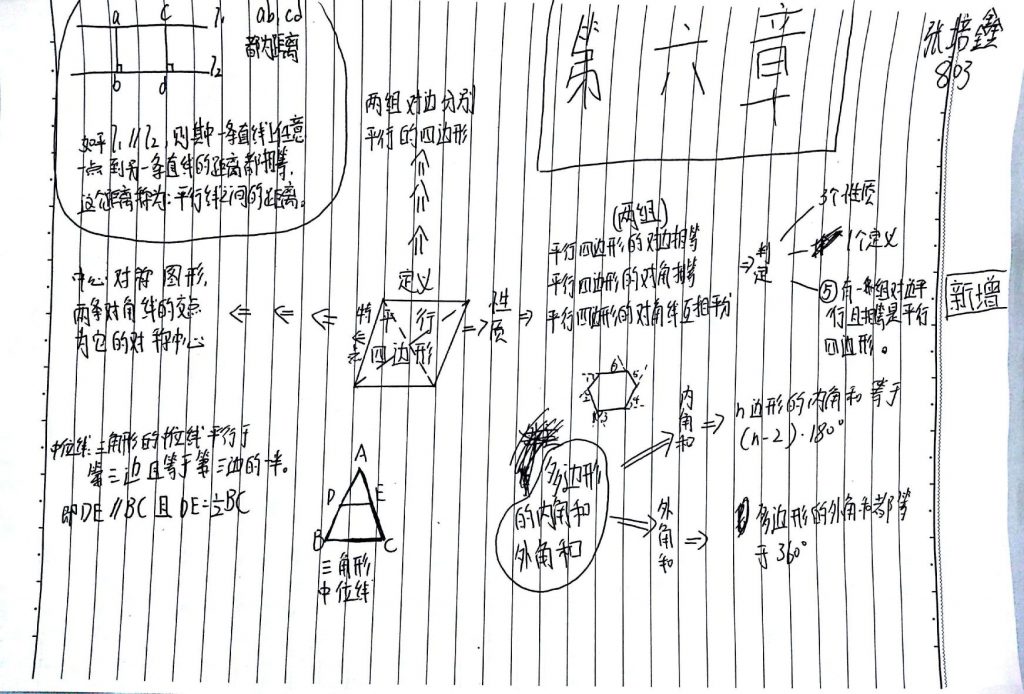 第六章
张培鑫
803
a c l₁
b d l₂
ab,cd
都为距离
如平l₁∥l₂,则其中一条直线上任意
一点到另一条直线的距离都相等,
这个距离称为:平行线之间的距离。
两组对边分别
平行的四边形
定义
平行
四边形
中心对称图形,
两条对角线的交点
为它的对称中心
性质
(两组)
平行四边形的对边相等
平行四边形的对角相等
平行四边形的对角线互相平分
判定
3个性质
1个定义
⑤有一组对边平
行且相等是平行
四边形。
新增
中位线:三角形的中位线平行于
第三边且等于第三边的一半。
即DE∥BC且DE=½BC
A
D E
B C
三角形
中位线
多边形
的内角和
外角和
内角和
n边形的内角和等于
(n-2)·180°
外角和
多边形的外角和都等
于360°